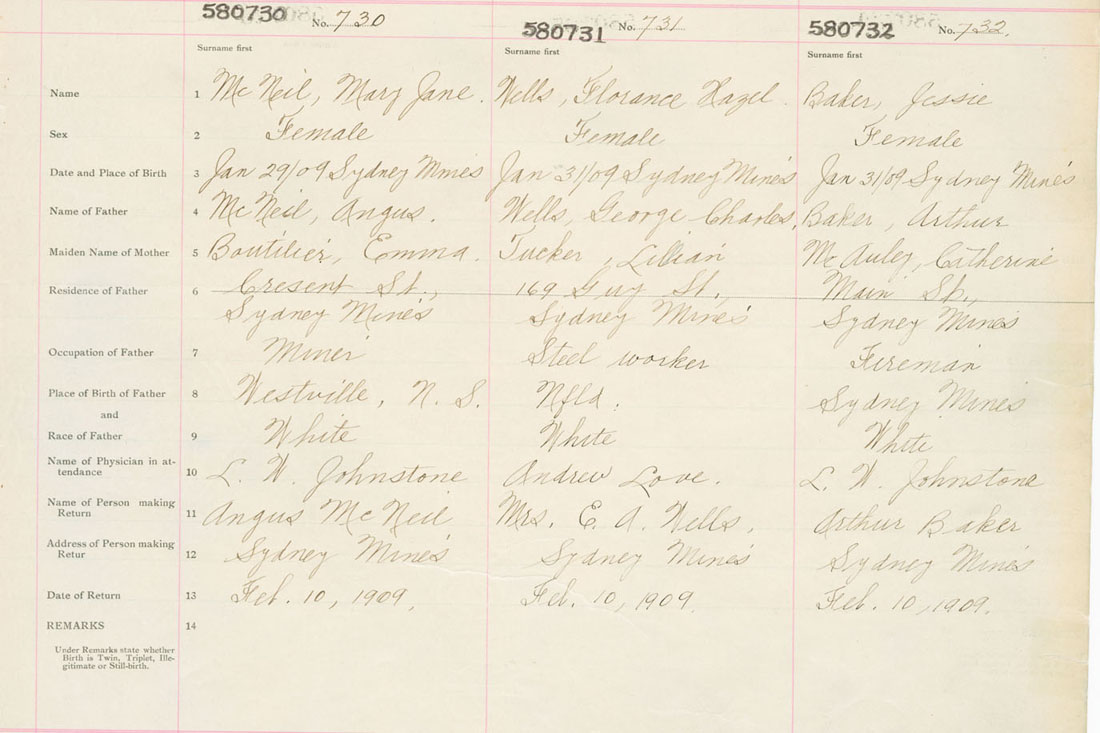 580730 No. 730 580731 No. 731 580732 No. 732.
Surname first Surname first Surname first
Name 1 McNeil, Mary Jane. Wells, Florance Hazel. Baker, Jessie
Sex 2 Female Female Female
Date and Place of Birth 3 Jan 29/09 Sydney Mines Jan 31/09 Sydney Mines Jan 31/09 Sydney Mines
Name of Father 4 McNeil, Angus. Wells, George Charles, Baker, Arthur
Maiden Name of Mother 5 Boutilier, Emma. Tucker, Lillian McAuley, Catherine
Residence of Father 6 Cresent St., 169 Guy St., Main St.,
Sydney Mines Sydney Mines Sydney Mines
Occupation of Father 7 Miner Steel worker Fireman
Place of Birth of Father 8 Westville, N. S. Nfld. Sydney Mines
and
Race of Father 9 White White White
Name of Physician in at-
tendance 10 L. W. Johnstone Andrew Love. L. W. Johnstone
Name of Person making
Return 11 Angus McNeil Mrs. E. A. Wells. Arthur Baker
Address of Person making
Retur 12 Sydney Mines Sydney Mines Sydney Mines
Date of Return 13 Feb. 10, 1909. Feb. 10, 1909. Feb. 10, 1909.
REMARKS 14
Under Remarks state whether
Birth is Twin, Triplet, Ille-
gitimate or Still-birth.